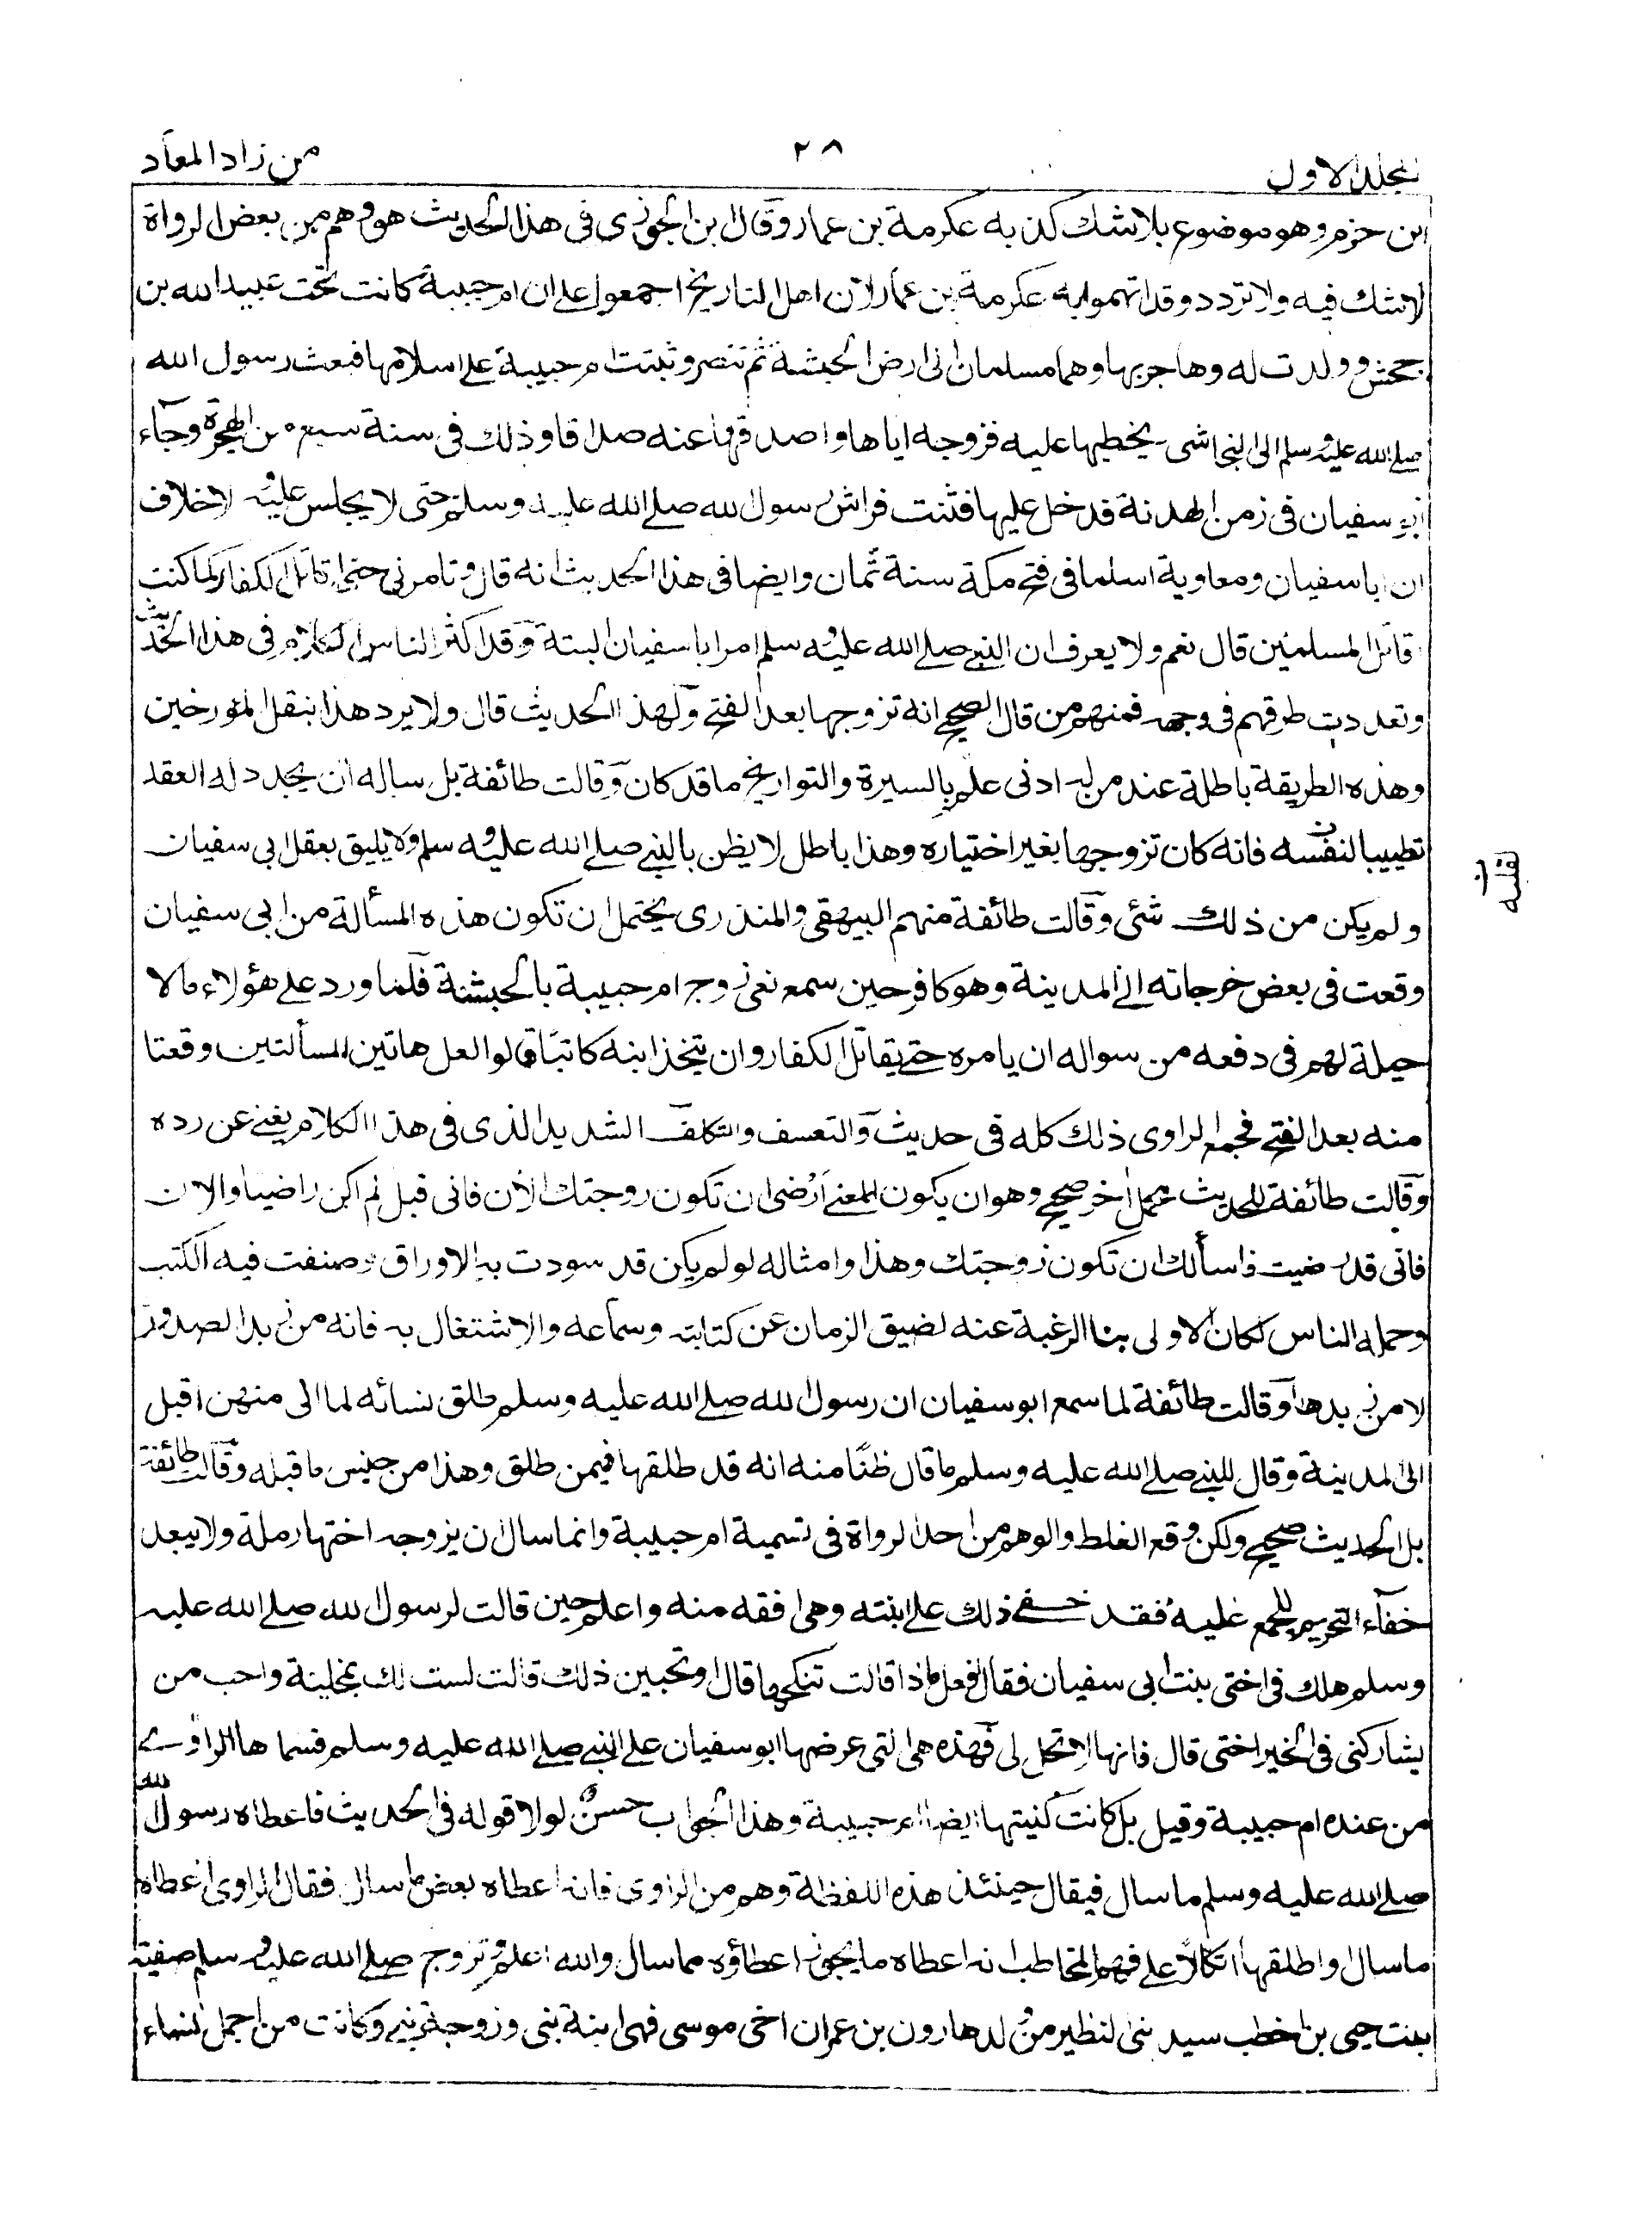 المجلد الاول ٢٨ من زاد المعاد
ابن حزم وهو موضوع بلا شك كذبه عكرمة بن عمار وقال بن الجوزى فى هذا الحديث هو وهم من بعض الرواة
لا شك فيه ولا تردد وقد اتهموا به عكرمة بن عمار لان اهل التاريخ اجمعوا على ان ام حبيبة كانت تحت عبيد الله بن
جحش وولدت له وهاجر بها وهما مسلمان الى ارض الحبشة ثم تنصر وثبتت ام حبيبة على اسلامها فبعث رسول الله
صلى الله عليه وسلم الى النجاشى يخطبها عليه فزوجه اياها واصدقها عنه صداقا وذلك فى سنة سبع من الهجرة وجاء
ابو سفيان فى زمن الهدنة فدخل عليها فثنت فراش رسول الله صلى الله عليه وسلم حتى لا يجلس عليه ولا خلاف
ان ابا سفيان ومعاوية اسلما فى فتح مكة سنة ثمان وايضا فى هذا الحديث انه قال وتامرنى حتى اقاتل الكفار كما كنت
اقاتل المسلمين قال نعم ولا يعرف ان النبى صلى الله عليه وسلم امر ابا سفيان البتة وقد اكثر الناس الكلام فى هذا الحديث
وتعددت طرقهم فى وجهه فمنهم من قال الصحيح انه تزوجها بعد الفتح ولهذا الحديث قال ولا يرد هذا بنقل المؤرخين
وهذه الطريقة باطلة عند من له ادنى علم بالسيرة والتواريخ ما قد كان وقالت طائفة بل ساله ان يجدد له العقد
تطييبا لنفسه فانه كان تزوجها بغير اختياره وهذا باطل لا يظن بالنبى صلى الله عليه وسلم ولا يليق بعقل ابى سفيان
لقلبه
ولم يكن من ذلك شئ وقالت طائفة منهم البيهقى والمنذرى يحتمل ان تكون هذه المسألة من ابى سفيان
وقعت فى بعض خرجاته الى المدينة وهو كافر حين سمع نعى زوج ام حبيبة بالحبشة فلما ورد على هؤلاء ما لا
حيلة لهم فى دفعه من سواله ان يامره حتى يقاتل الكفار وان يتخذ ابنه كاتبا قالوا لعل هاتين المسألتين وقعتا
منه بعد الفتح فجمع الراوى ذلك كله فى حديث والتعسف والتكلف الشديد الذى فى هذا الكلام يغنى عن رده
وقالت طائفة للحديث محمل اخر صحيح وهو ان يكون المعنى ارضى ان تكون زوجتك الان فانى قبل لم اكن راضيا والان
فانى قد رضيت فاسألك ان تكون زوجتك وهذا وامثاله لو لم يكن قد سودت به الاوراق وصنفت فيه الكتب
وحمله الناس لكان الاولى بنا الرغبة عنه لضيق الزمان عن كتابته وسماعه والاشتغال به فانه من زبد الصدور
لا من زبدها وقالت طائفة لما سمع ابو سفيان ان رسول الله صلى الله عليه وسلم طلق نسائه لما الى منهن اقبل
الى المدينة وقال للنبى صلى الله عليه وسلم ما قال ظنا منه انه قد طلقها فيمن طلق وهذا من جنس ما قبله وقالت طائفة
بل الحديث صحيح ولكن وقع الغلط والوهم من احد الرواة فى تسمية ام حبيبة وانما سال ان يزوجه اختها رملة ولا يبعد
خفاء التحريم للجمع عليه فقد خفى ذلك على ابنته وهى افقه منه واعلم حين قالت لرسول الله صلى الله عليه
وسلم هلك فى اختى بنت ابى سفيان فقال افعل ماذا قالت تنكحها قال او تحبين ذلك قالت لست لك بمخلية واحب من
يشاركنى فى الخير اختى قال فانها لا تحل لى فهذه هى التى عرضها ابو سفيان على النبى صلى الله عليه وسلم فسماها الراوى
من عنده ام حبيبة وقيل بل كانت كنيتها ايضا ام حبيبة وهذا الجواب حسن لولا قوله فى الحديث فاعطاه رسول الله
صلى الله عليه وسلم ما سال فيقال حينئذ هذه اللفظة وهم من الراوى فانه اعطاه بعض ما سال فقال الراوى اعطاه
ما سال واطلقها اتكالا على فهم المخاطب انه اعطاه ما يجوز اعطاؤه مما سال والله اعلم وتزوج صلى الله عليه وسلم صفية
بنت حيى بن اخطب سيد بنى النظير من ولد هارون بن عمران اخى موسى فهى ابنة نبى وزوجة نبى وكانت من اجمل نساء